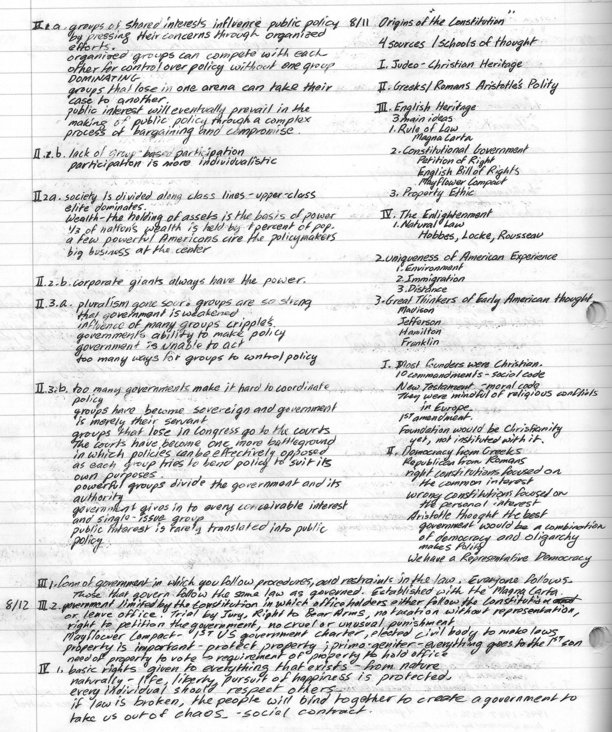 II.1.a. groups of shared interests influence public policy
by pressing their concerns through organized
efforts.
organized groups can compete with each
other for control over policy without one group
DOMINATING.
groups that lose in one arena can take their
case to another.
public interest will eventually prevail in the
making of public policy through a complex
process of bargaining and compromise.
II.1.b. lack of group-based participation
participation is more individualistic
II.2a. society is divided along class lines - upper-class
elite dominates.
Wealth - the holding of assets is the basis of power
1/3 of nation's wealth is held by 1 percent of pop.
a few powerful Americans are the policymakers
big business at the center
II.2.b. corporate giants always have the power.
II.3.a. pluralism gone sour: groups are so strong
that government is weakened
influence of many groups cripples
governments ability to make policy
government is unable to act
too many ways for groups to control policy
II.3.b. too many governments make it hard to coordinate
policy
groups have become sovereign and government
is merely their servant
groups that lose in Congress go to the courts
The courts have become one more battleground
in which policies can be effectively opposed
as each group tries to bend policy to suit its
own purposes.
powerful groups divide the government and its
authority
government gives in to every conceivable interest
and single-issue group
public interest is rarely translated into public
policy.
8/11 Origins of "the Constitution"
4 sources / schools of thought
I. Judeo-Christian Heritage
II. Greeks/Romans Aristotle's Polity
III. English Heritage
3 main ideas
1. Rule of Law
Magna Carta
2. Constitutional Government
Petition of Right
English Bill of Rights
Mayflower Compact
3. Property Ethic
IV. The Enlightenment
1. Natural Law
Hobbes, Locke, Rousseau
2. uniqueness of American Experience
1. Environment
2. Immigration
3. Distance
3. Great Thinkers of Early American thought,
Madison
Jefferson
Hamilton
Franklin
I. Most founders were Christian.
10 commandments - social code
New Testament - moral code
They were mindful of religious conflicts
in Europe.
1ST amendment.
Foundation would be Christianity
yet, not instituted with it.
II. Democracy from Greeks
Republican from Romans
right constitutions focused on
the common interest
wrong constitutions focused on
the personal interest
Aristotle thought the best
government would be a combination
of democracy and oligarchy
makes Polity
We have a Representative Democracy
III 1. Form of government in which you follow procedures, and restraints in the law. Everyone follows.
Those that govern follow the same law as governed. Established with the Magna Carta
8/12 III 2. government limited by the Constitution in which officeholders either follow the Constitution
or leave office. Trial by Jury, Right to Bear Arms, no taxation without representation,
right to petition the government, no cruel or unusual punishment
Mayflower Compact - 1ST US government charter, elected civil body to make laws
property is important - protect property; primo-geniter - everything goes to the 1ST son
need of property to vote - requirement of property to hold office
IV 1. basic rights given to everything that exists - from nature
naturally - life, liberty, pursuit of happiness is protected.
every individual should respect others
if law is broken, the people will bind together to create a government to
take us out of chaos. - social contract.